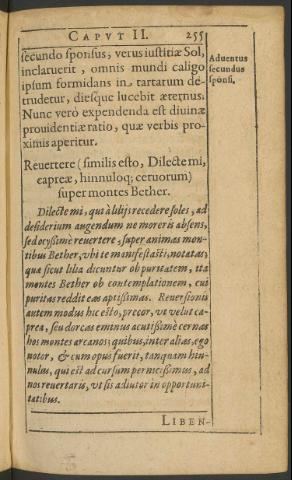 CAPVT II. 255
secundo sponsus, verus iustitiæ Sol,
inclaruerit, omnis mundi caligo
ipsum formidans in tartarum de-
trudetur, diesque lucebit æternus.
Nunc verò expendenda est diuinæ
prouidentiæ ratio, quæ verbis pro-
ximis aperitur.
Aduentus
secundus
sponsi.
Reuertere (similis esto, Dilecte mi,
capreæ, hinnuloq; ceruorum)
super montes Bether.
Dilecte mi, qui à lilijs recedere soles, ad
desiderium augendum ne moreris absens,
sed ocyßimè reuertere, super animas mon-
tibus Bether, vbi te manifestasti, notatas;
quæ sicut lilia dicuntur ob puritatem, ita
montes Bether ob contemplationem, cui
puritas reddit eas aptißimas. Reuersionis
autem modus hic esto, precor, vt velut ca-
prea, seu dorcas eminus acutißimè cernas
hos montes arcanos; quibus, inter alias, ego
notor, & cum opus fuerit, tanquam hin-
nulus, qui est ad cursum pernicißimus, ad
nos reuertaris, vt sis adiutor in opportuni-
tatibus.
LIBEN-